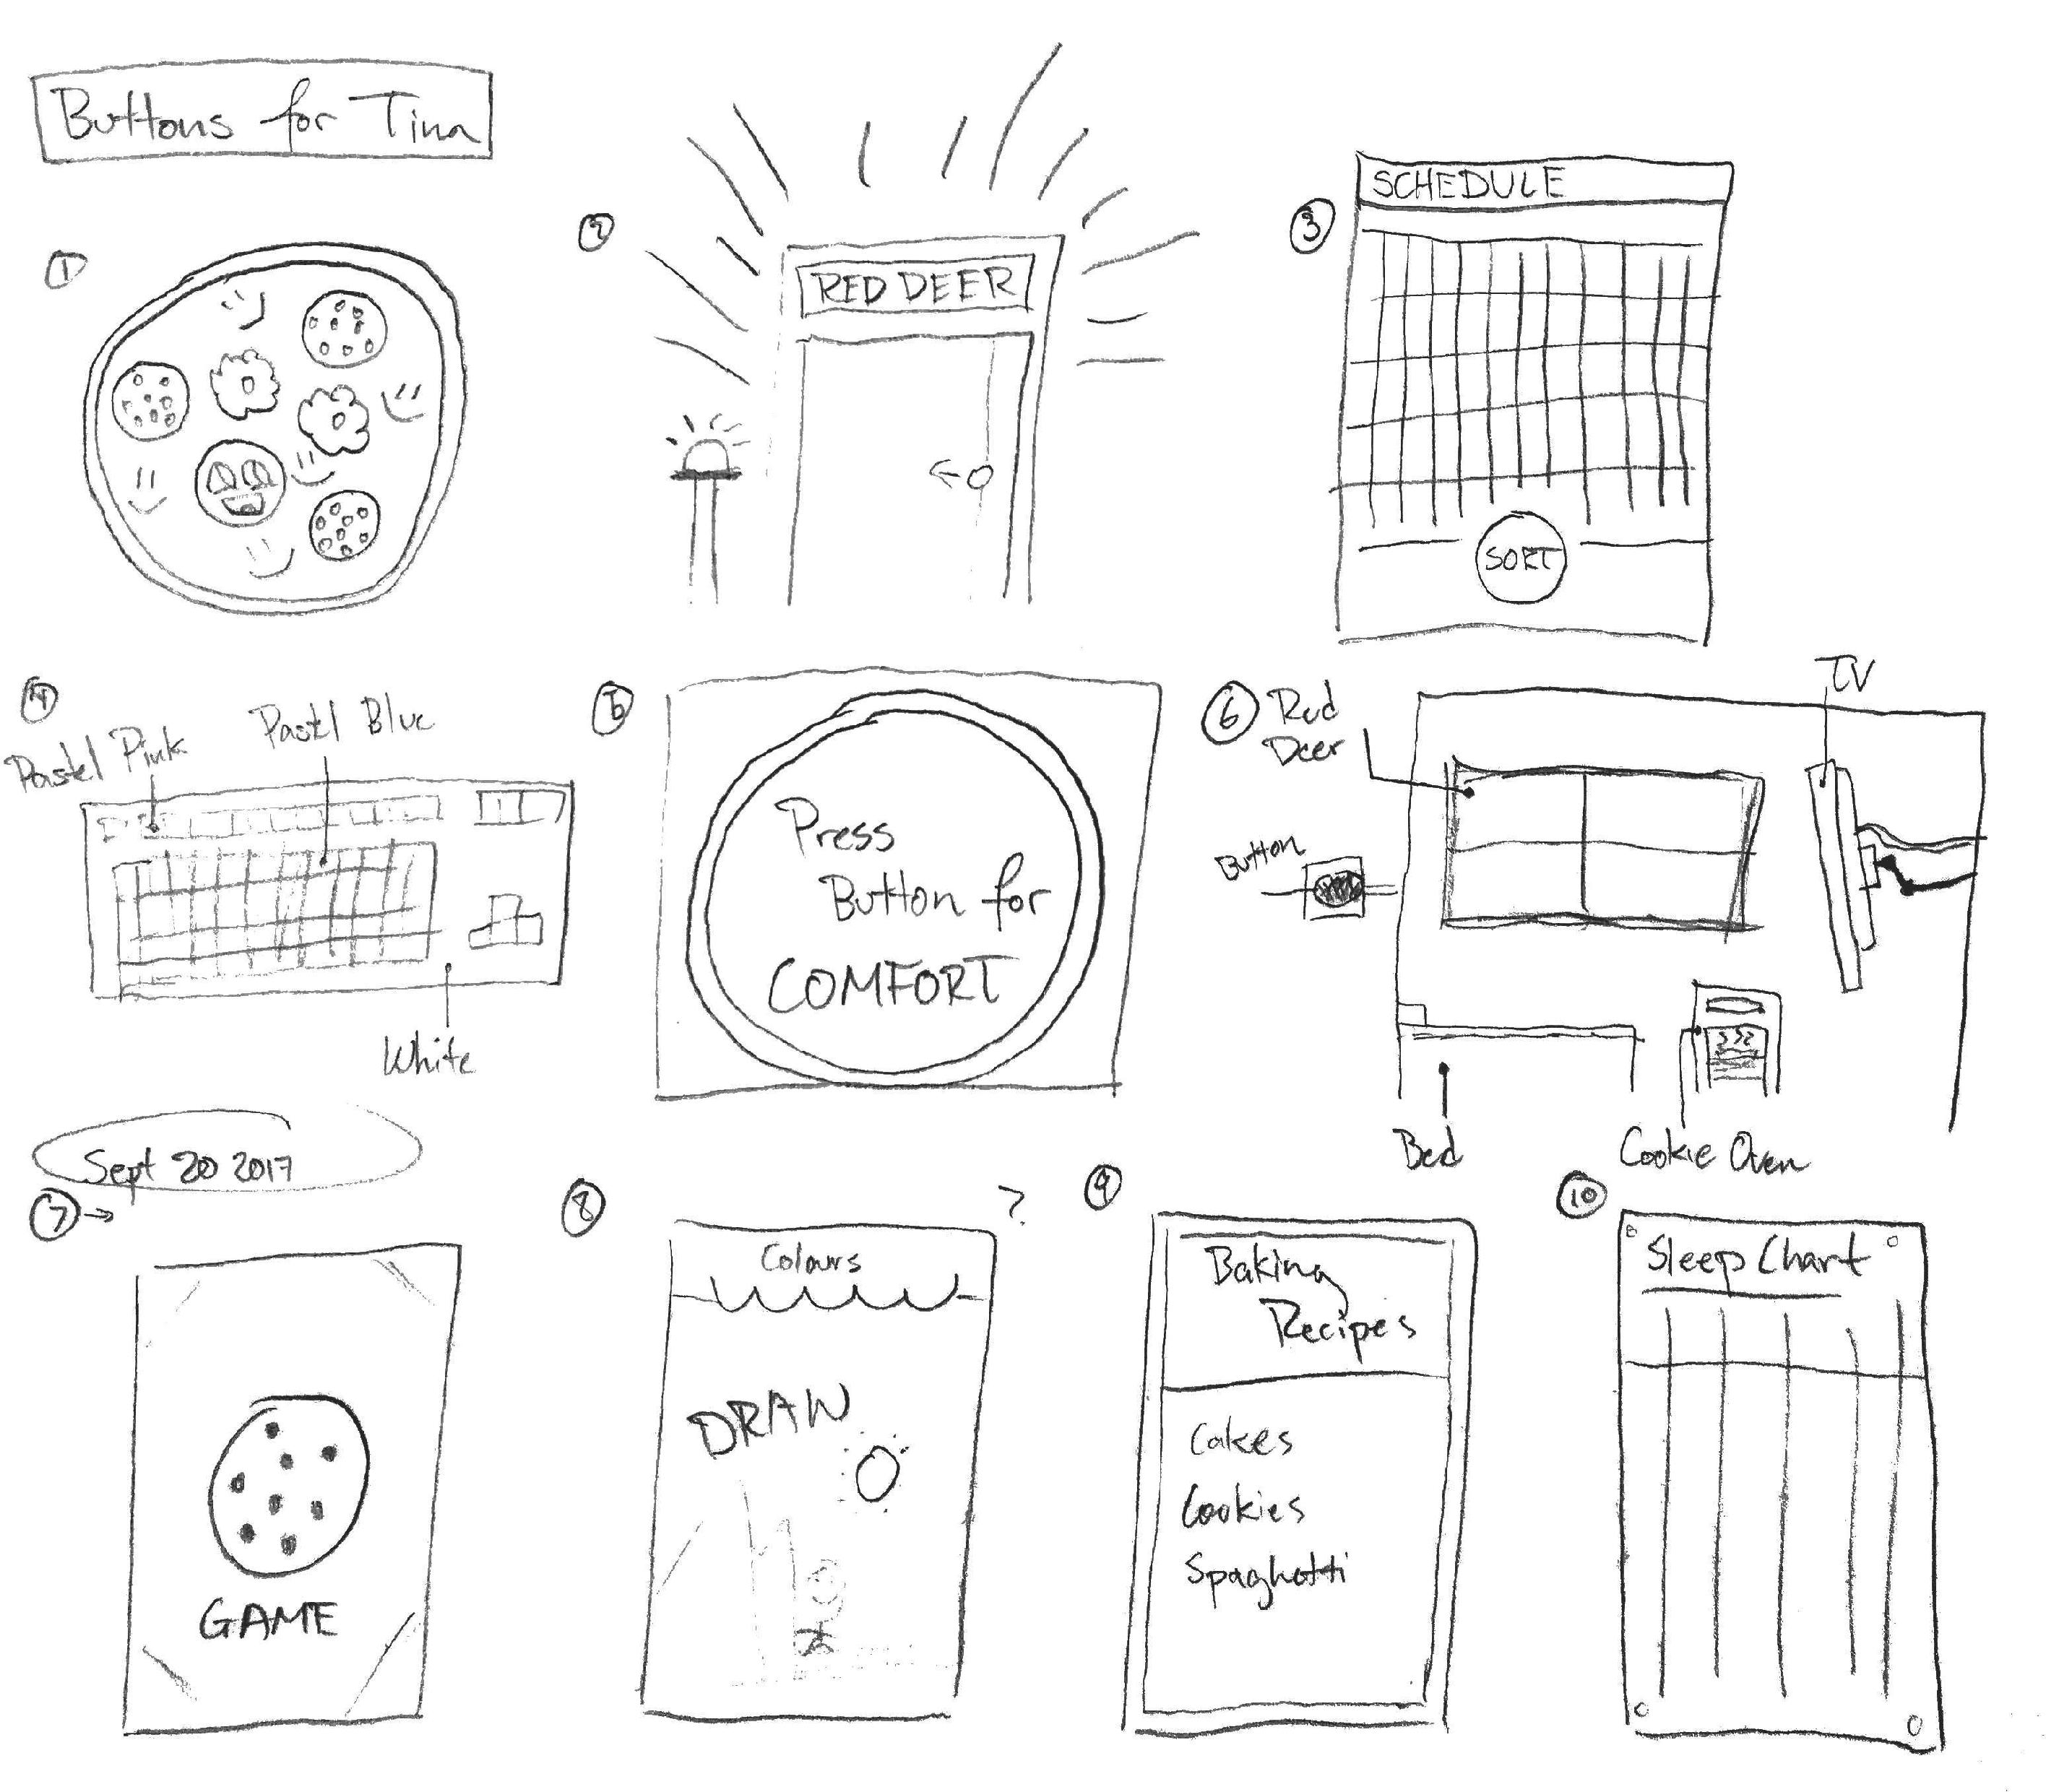 Buttons for Tina
1
2
RED DEER
3
SCHEDULE
SORT
4
Pastel Pink
Pastel Blue
White
5
Press
Button for
COMFORT
6
Red
Deer
TV
Button
Bed
Cookie Oven
Sept 20 2017
7 →
GAME
8
?
Colours
DRAW
9
Baking
Recipes
Cakes
Cookies
Spaghetti
10
Sleep Chart